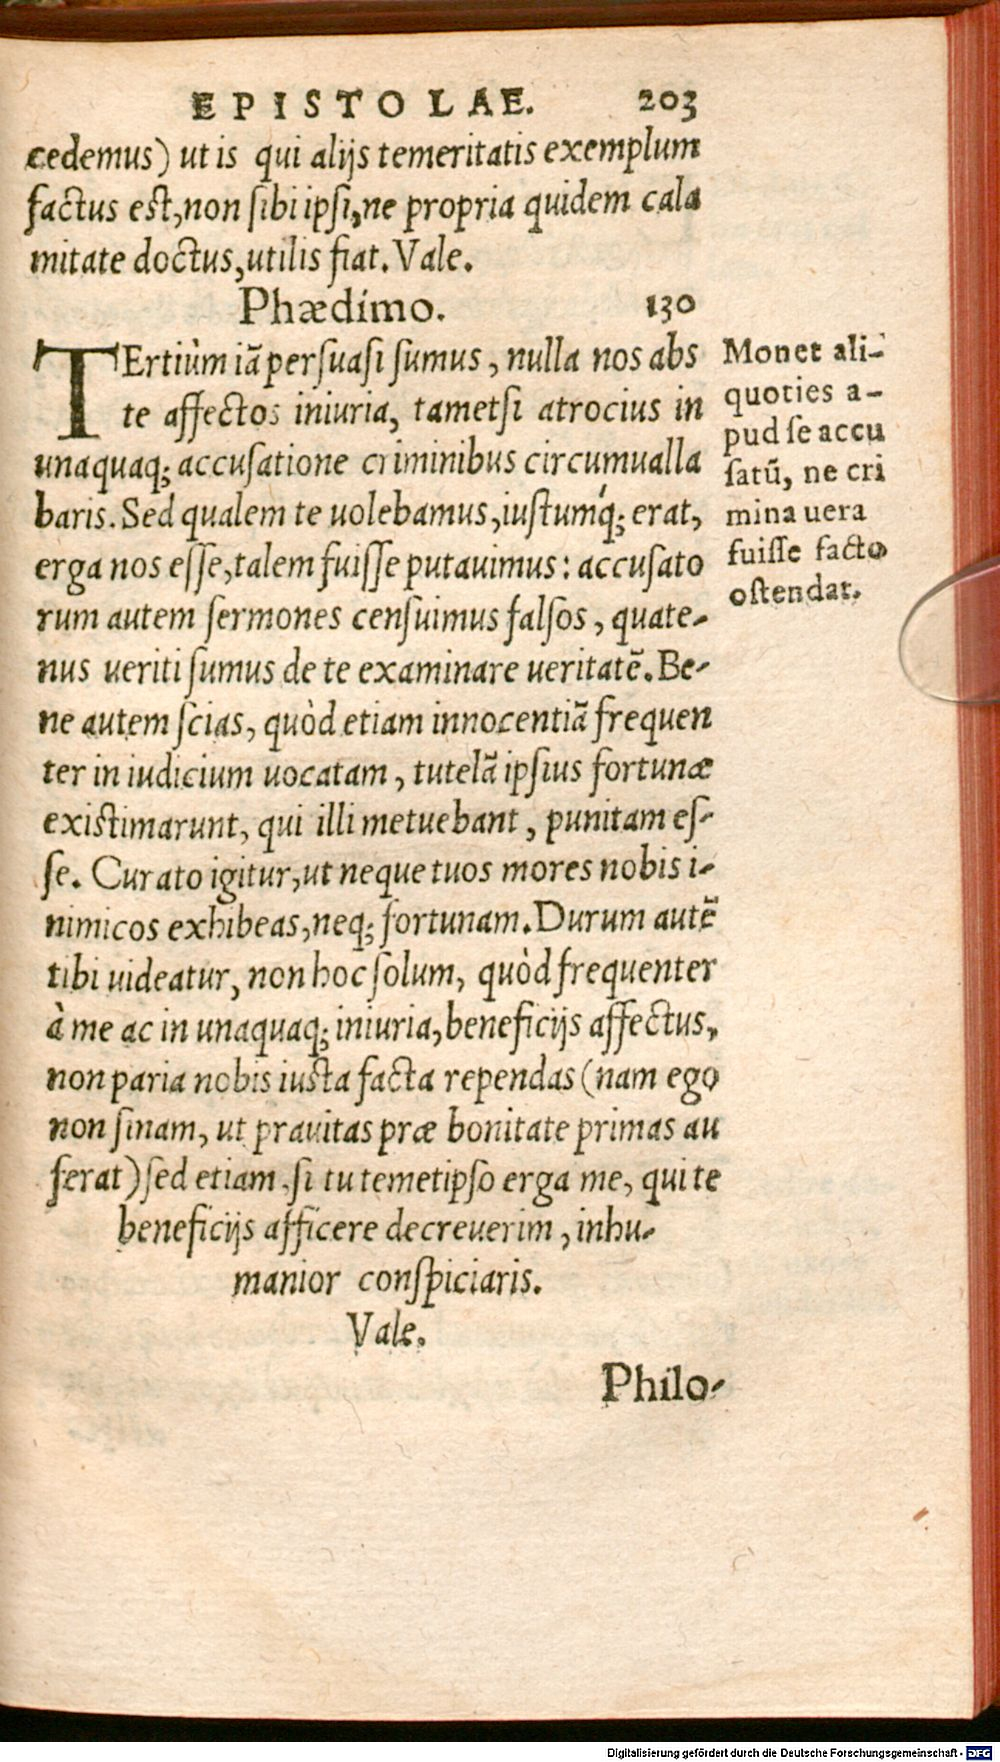 EPISTOLAE. 203
cedemus) ut is qui alijs temeritatis exemplum
factus est, non sibi ipsi, ne propria quidem cala
mitate doctus, utilis fiat. Vale.
Phædimo. 130
TErtiùm iã persuasi sumus, nulla nos abs
te affectos iniuria, tametsi atrocius in
unaquaq; accusatione criminibus circumualla
baris. Sed qualem te uolebamus, iustumq́; erat,
erga nos esse, talem fuisse putauimus: accusato
rum autem sermones censuimus falsos, quate-
nus ueriti sumus de te examinare ueritatẽ. Be-
ne autem scias, quòd etiam innocentiã frequen
ter in iudicium uocatam, tutelã ipsius fortunæ
existimarunt, qui illi metuebant, punitam es-
se. Curato igitur, ut neque tuos mores nobis i-
nimicos exhibeas, neq; fortunam. Durum autẽ
tibi uideatur, non hoc solum, quòd frequenter
à me ac in unaquaq; iniuria, beneficijs affectus,
non paria nobis iusta facta rependas (nam ego
non sinam, ut prauitas præ bonitate primas au
ferat) sed etiam, si tu temetipso erga me, qui te
beneficijs afficere decreuerim, inhu-
manior conspiciaris.
Vale.
Philo-
Monet ali-
quoties a-
pud se accu
satũ, ne cri
mina uera
fuisse facto
ostendat.
Digitalisierung gefördert durch die Deutsche Forschungsgemeinschaft - DFG